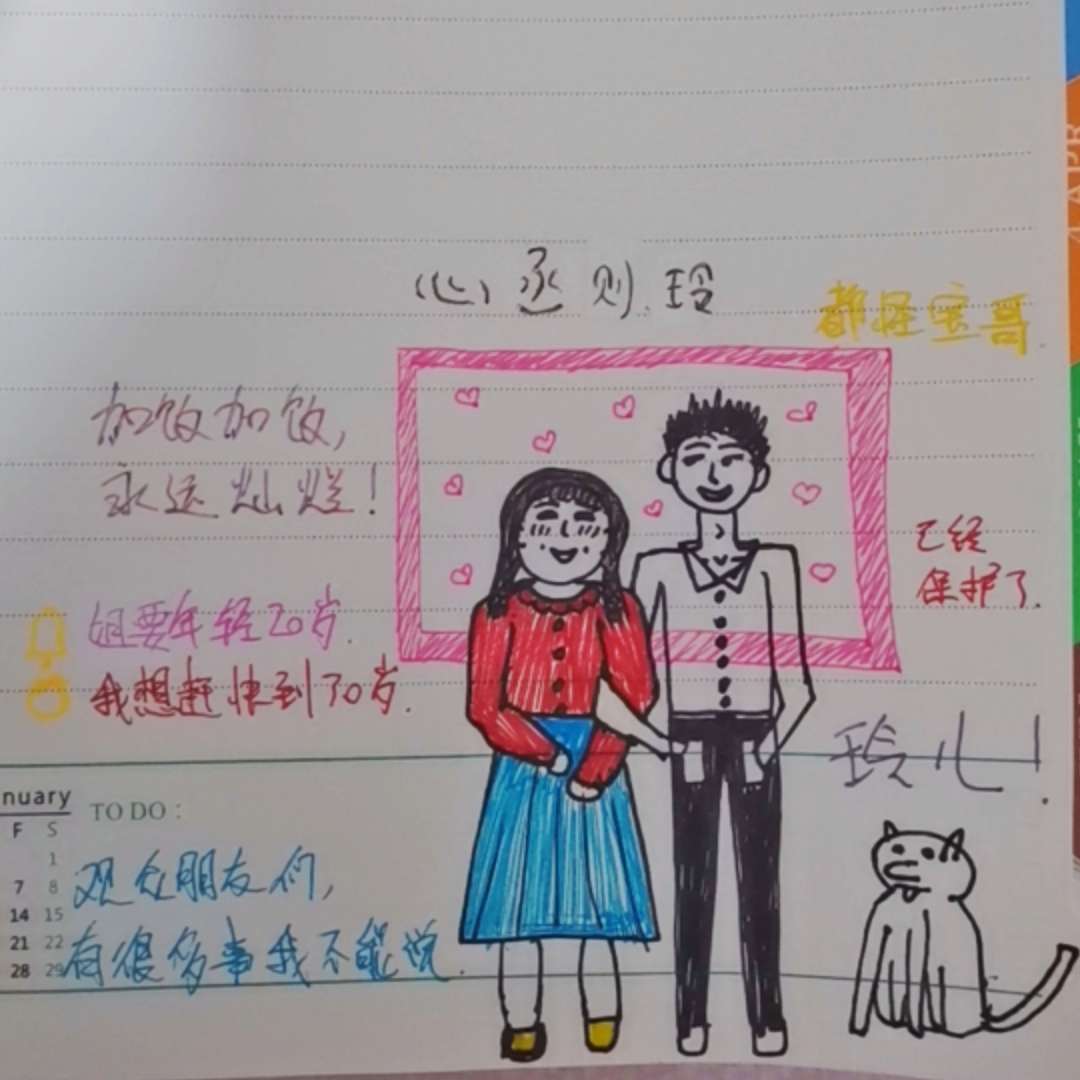 心丞则玲
都怪宝哥
加饭加饭,
永远灿烂!
姐要年轻20岁.
我想赶快到70岁.
已经
保护了.
玲儿!
nuary
TO DO :
F S
1
7 8
14 15
21 22
28 29
观众朋友们,
有很多事我不能说.
4 APR